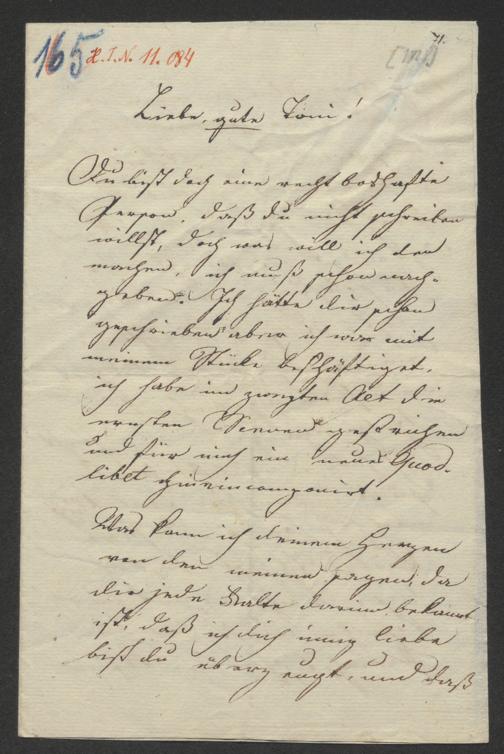 165 H.I.N. 11.084
Liebe, gute Toni!
Du bist doch eine recht boshafte
Person, daß du nicht schreiben
willst, doch was will ich den
machen, ich muß schon nach-
geben. Ich hätte dir schon
geschrieben aber ich war mit
meinem Stücke beschäftiget,
ich habe im zweyten Act die
ernsten Scenen gestrichen
und für mich ein neues Quod-
libet hineincomponirt.
Was kann ich deinem Herzen
von den meinen sagen, da
dir jede Falte darinn bekannt
ist, daß ich dich innig liebe
bist du überzeugt, und daß